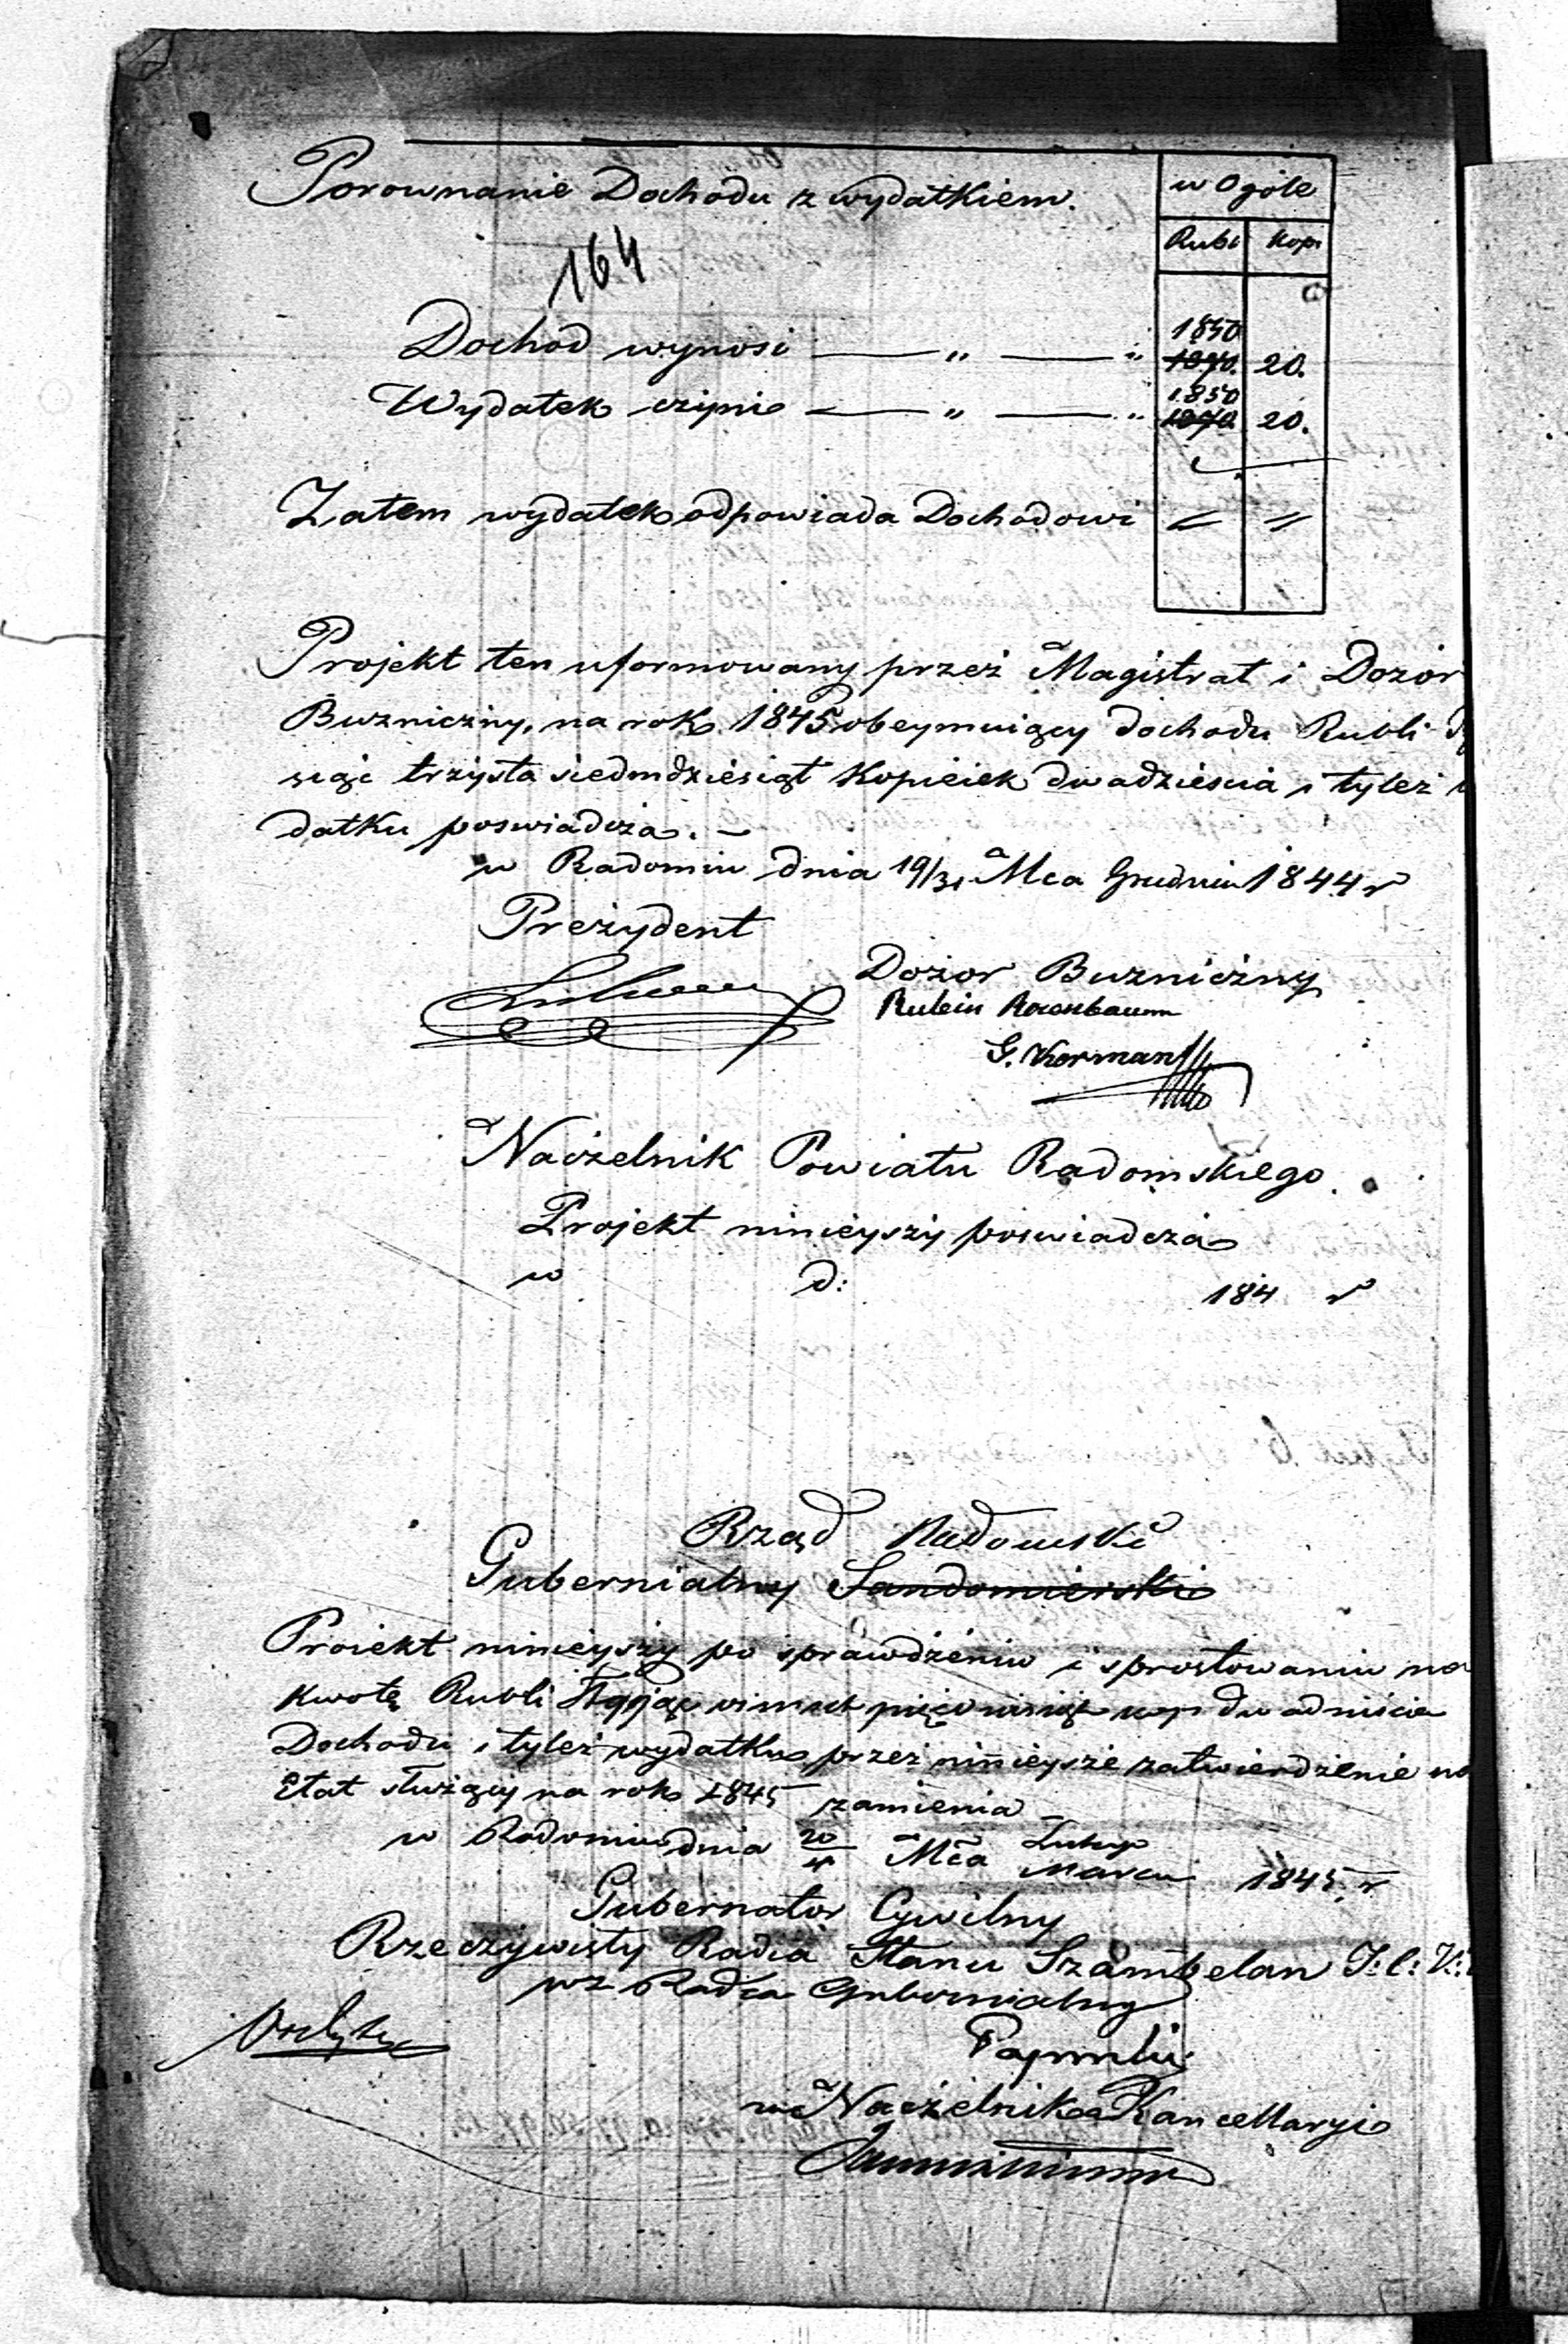 Porownanie Dochodu z wydatkiem.
w Ogóle
Rubl Kop
164
Dochod wynosi — " — " 1850 20.
Wydatek czyni — " — " 1850 20.
Zatem wydatek odpowiada Dochodowi " "
Projekt ten uformowany przez Magistrat i Dozor
Buzniczny, na rok 1845 obeymuiący dochodu Rubli
siąc trzysta siedmdziesiąt Kopieiek dwadzieścia i tyleż
datku poswiadcza. —
w Radomiu dnia 19/31 Mca Grudnia 1844 r
Prezydent
Dozor Buzniczny
Rubin Rosenbaum
G. Korman
Naczelnik Powiatu Radomskiego.
Projekt ninieyszy poswiadcza
w d: 184 r
Rząd Radomski
Gubernialny Sandomierski
Proiekt ninieyszy po sprawdzeniu i sprostowaniu na
Kwotę Rubli Tysiąc osimset pięćdziesiąt kop dwadzieścia
Dochodu i tyleż wydatku przez ninieysze zatwierdzenie na
Etat służący na rok 1845 zamienia —
w Radomiu dnia 20/4 Mca Lutego/Marca 1845 r
Gubernator Cywilny
Rzeczywisty Radca Stanu Szambelan J: C: K:
wz Radca Gubernialny
w Naczelnika Kancellaryi